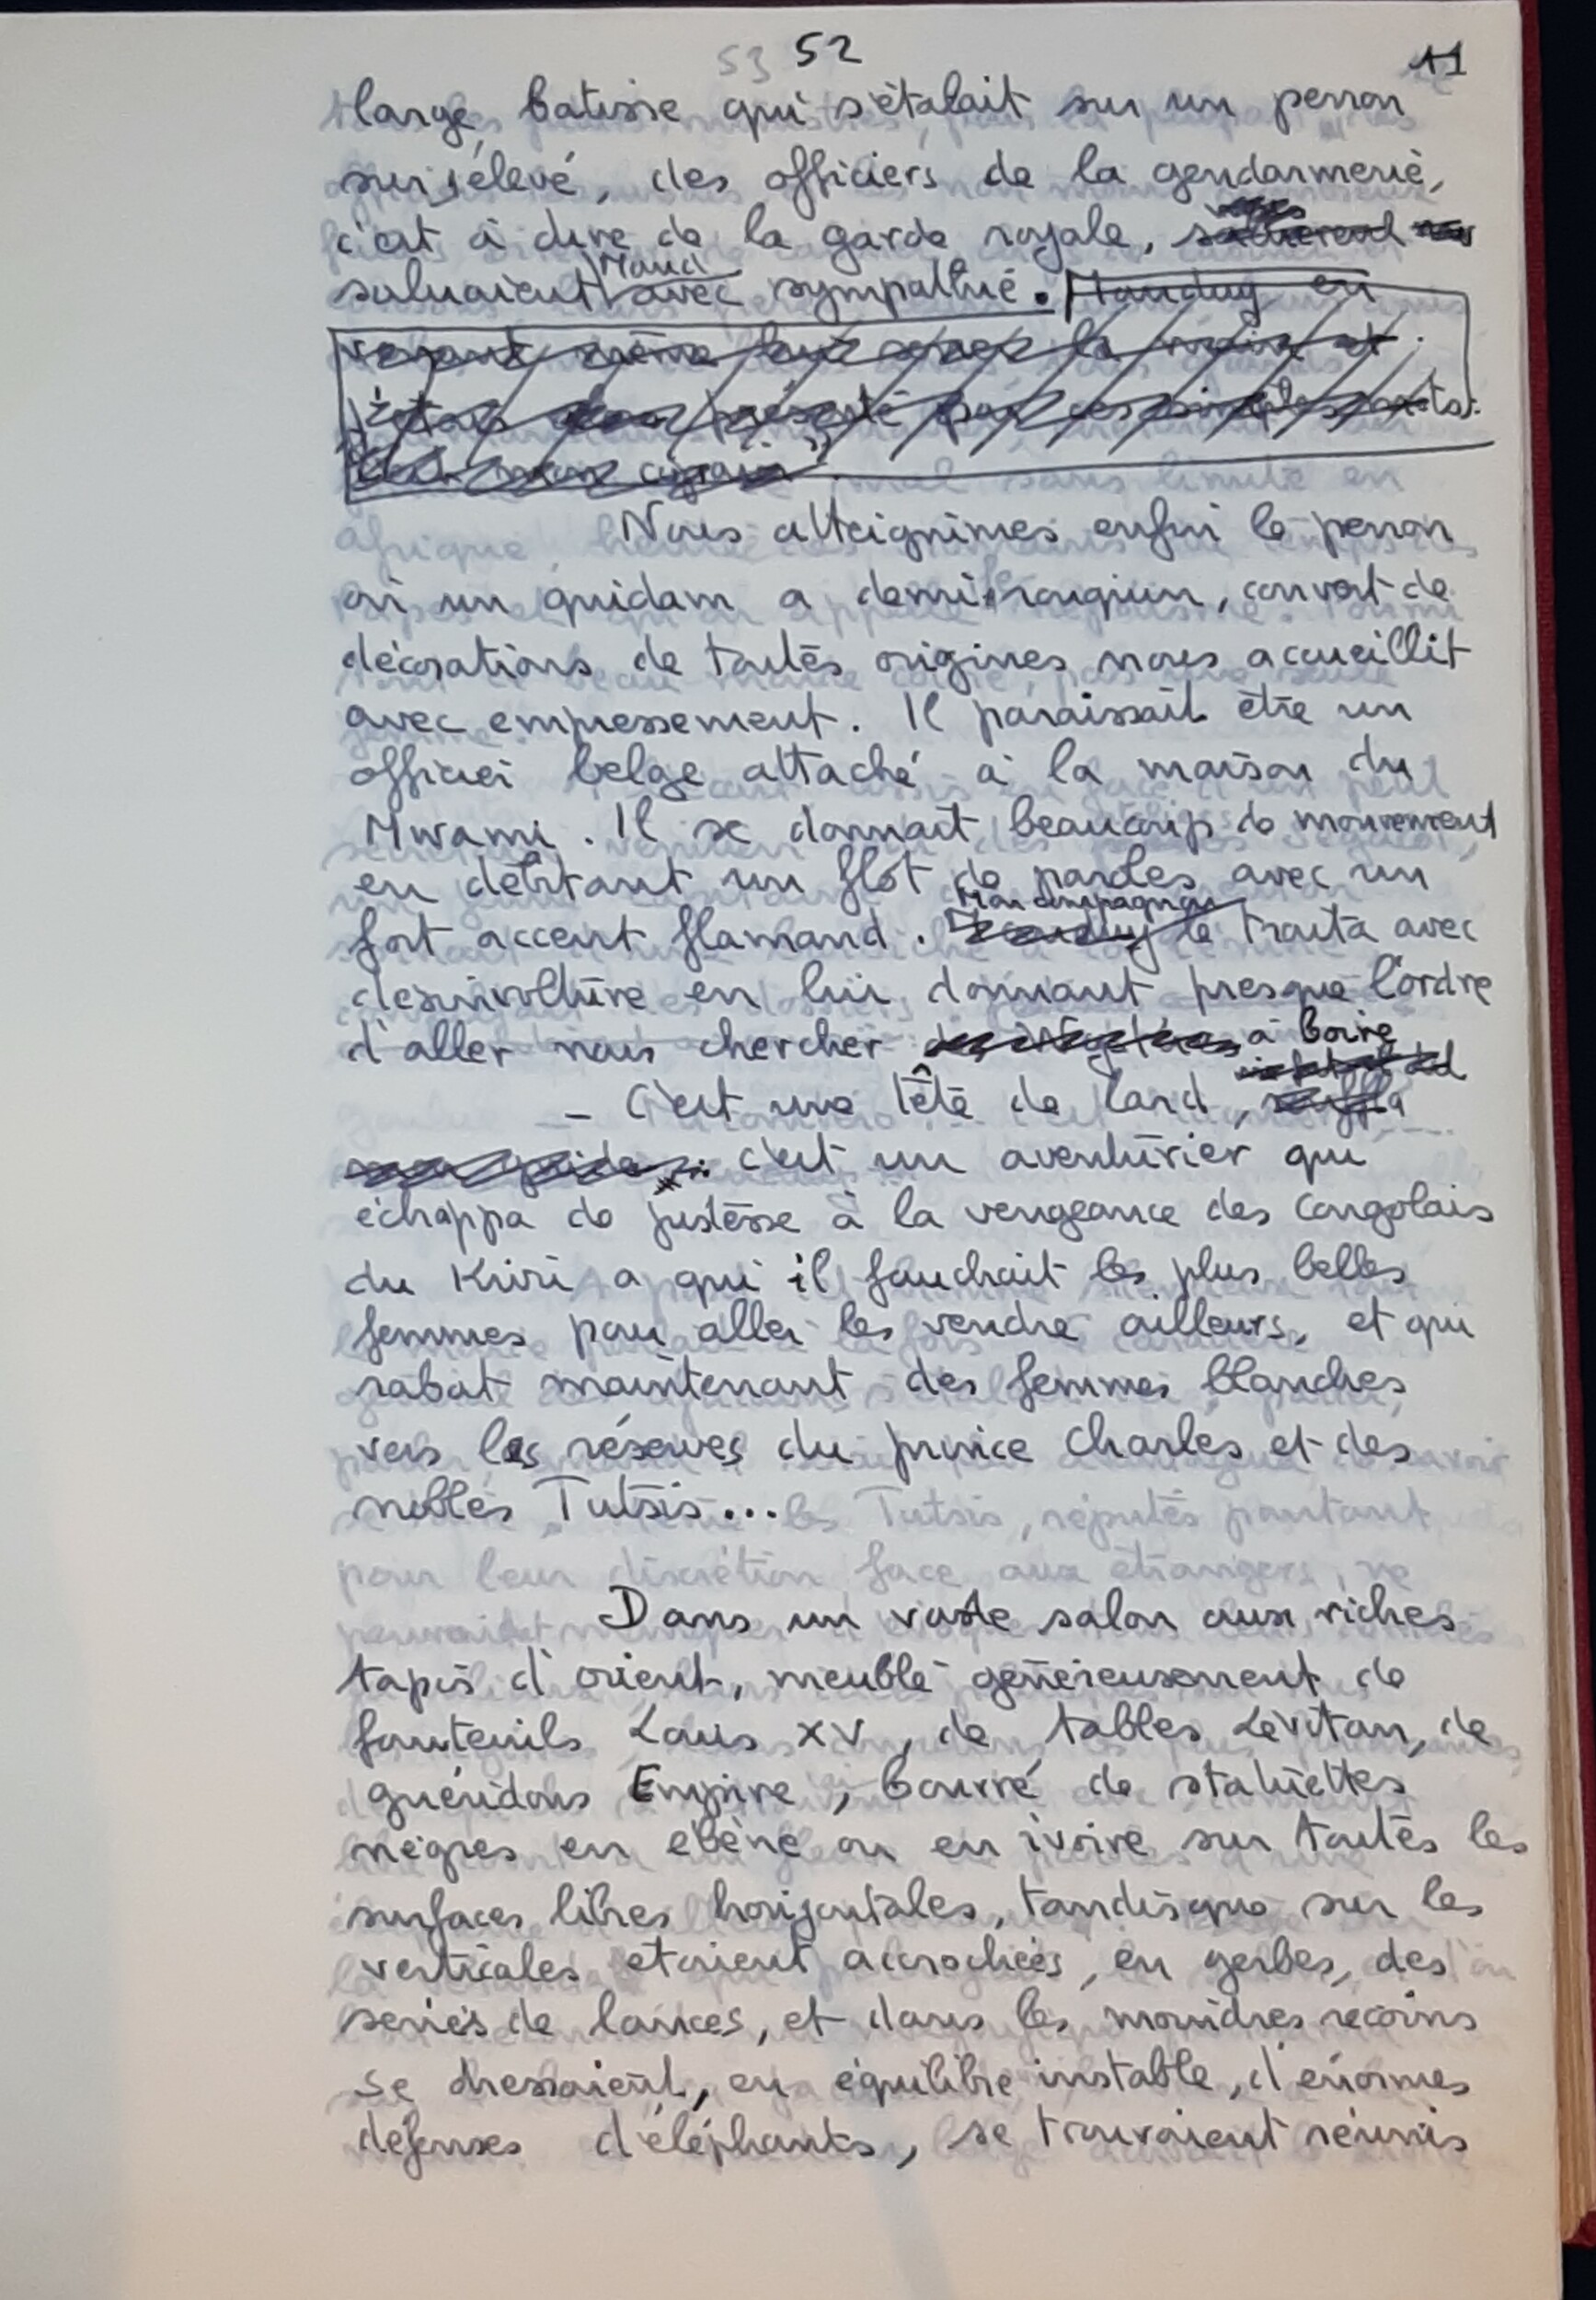 53 52 11
large batisse qui s'étalait sur un perron
surélevé, des officiers de la gendarmerie,
c'est à dire de la garde royale,
saluaient avec sympathie. Manduy en
voyant même leur serrer la main et
j'étais
C'est mon copain"
Nous atteignimes enfin le perron
où un quidam a demi rouquin, couvert de
décorations de toutes origines nous accueillit
avec empressement. Il paraissait être un
officier belge attaché à la maison du
Mwami. Il se donnait beaucoup de mouvement
en débitant un flot de paroles avec un
Mon compagnon
fort accent flamand. le traita avec
desinvolture en lui donnant presque l'ordre
d'aller nous chercher à boire
- C'est une tête de lard,
c'est un aventurier qui
échappa de justesse à la vengeance des Congolais
du Kivu a qui il fauchait les plus belles
femmes pour aller les vendre ailleurs, et qui
rabat maintenant des femmes blanches
vers les réserves du prince Charles et des
nobles Tutsis...
Dans un vaste salon aux riches
tapis d'orient, meublé généreusement de
fauteuils Louis XV, de tables Lévitan, de
guéridons Empire, bourré de statuettes
nègres en ébène ou en ivoire sur toutes les
surfaces libres horizontales, tandisque sur les
verticales étaient accrochées, en gerbes, des
séries de lances, et dans les moindres recoins
se dressaient, en équilibre instable, d'énormes
défenses d'éléphants, se trouvaient réunis